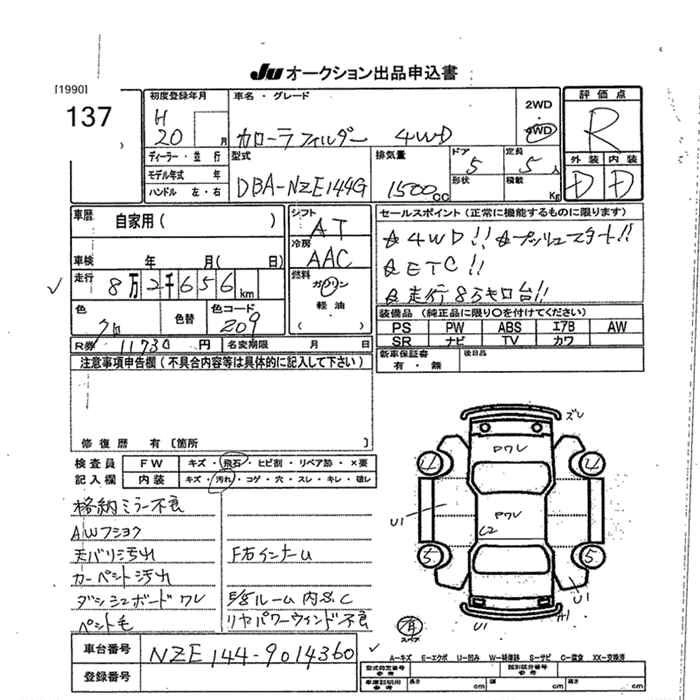 JU オークション出品申込書
[1990]
137
初度登録年月
H
20 月
車名・グレード
カローラフィルダー 4WD
2WD
4WD
評価点
R
外装 内装
D D
ディーラー・並行
モデル年式 年
ハンドル 左・右
型式
DBA-NZE144G
排気量
1500 CC
ドア
5
形状
定員
5 人
積載
Kg
車歴
自家用( )
車検 年 月( 日)
走行 8万2千656 km
色 クロ
色替
色コード 209
シフト
AT
冷房
AAC
燃料
ガソリン
軽油
( )
セールスポイント(正常に機能するものに限ります)
☆4WD!! ☆プッシュスタート!!
☆ETC!!
☆走行8万キロ台!!
装備品(純正品に限り○を付けてください)
PS PW ABS エアB AW
SR ナビ TV カワ
R券 11730 円 名変期限 月 日
新車保証書
有・無
後日品
注意事項申告欄(不具合内容等は具体的に記入して下さい)
修復歴 有[箇所 ]
検査員
記入欄
FW キズ・飛石・ヒビ割・リペア跡・×要
内装 キズ・汚れ・コゲ・穴・スレ・キレ・破レ
格納ミラー不良
AWフショク
天バリ汚れ
F右インナーム
カーペット汚れ
ダッシュボードワレ
ルーム内 C
ペット毛
リヤパワーウィンド不良
ズレ
ワレ
U1
ワレ
C2
5
5
U1
U1
A1
有
スペア
車台番号 NZE144-9014360
登録番号
A=キズ E=エクボ U=凹み W=補修跡 S=サビ C=腐食 XX=交換済
型式指定番号
参考
類別区分番号
参考
車庫証明用
参考
長さ cm
幅 cm
高さ cm